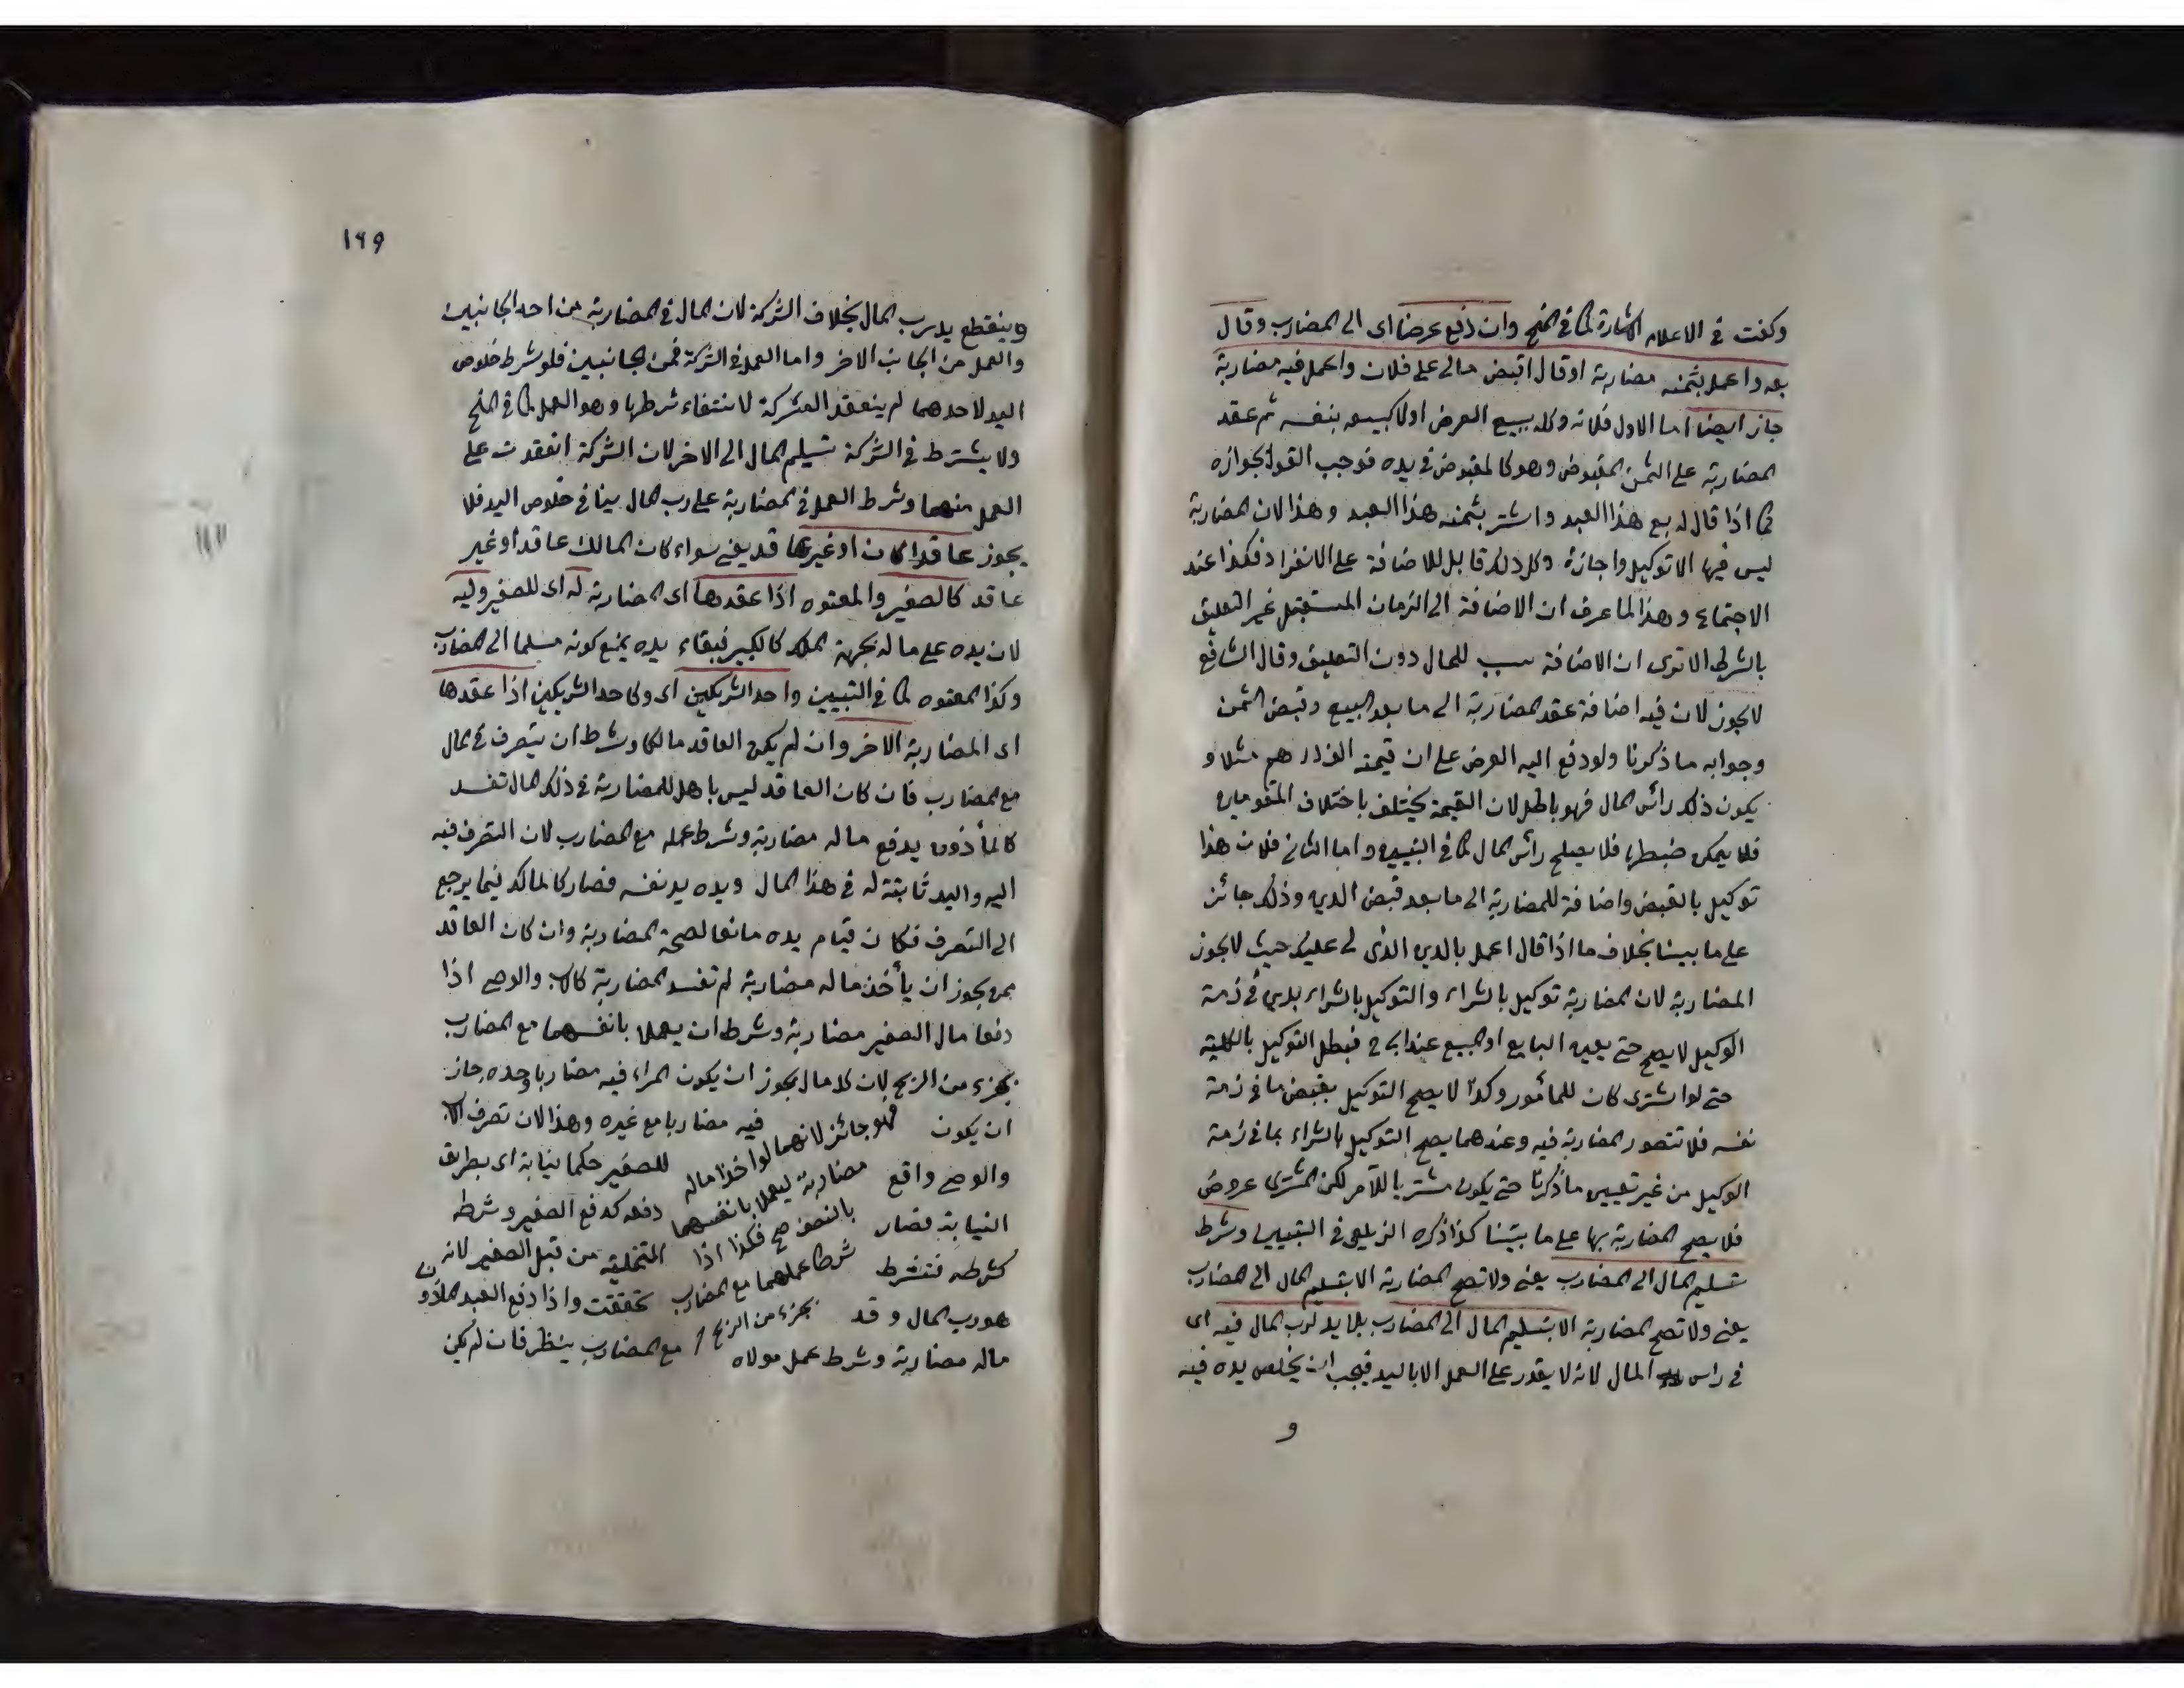 وكفت في الاعلام الاشارة كما في المنح وان دفع عرضا اى الى المضارب وقال
بعه واعمل بثمنه مضاربة او قال اقبض مالى على فلان واعمل فيه مضاربة
جاز ايضا اما الاول فلانه وكله ببيع العرض اولا كبيعه بنفسه ثم عقد
المضاربة على الثمن المقبوض وهو كالمقبوض فى يده فوجب القول بجوازه
كما اذا قال له بع هذا العبد واشتر بثمنه هذا العبد وهذا لان المضاربة
ليس فيها الا توكيل واجازة وكل ذلك قابل للاضافة على الانفراد فكذا عند
الاجتماع وهذا لما عرف ان الاضافة الى الزمان المستقبل غير التعليق
بالشرط الا ترى ان الاضافة سبب للحال دون التعليق وقال الشافعى
لا يجوز لان فيه اضافة عقد المضاربة الى ما بعد البيع وقبض الثمن
وجوابه ما ذكرنا ولو دفع اليه العرض على ان قيمته الف درهم مثلا و
يكون ذلك رأس المال فهو باطل لان القيمة تختلف باختلاف المقومين
فلا يمكن ضبطها فلا يصلح رأس المال كما فى التبيين واما الثانى فلان هذا
توكيل بالقبض واضافة للمضاربة الى ما بعد قبض الدين وذلك جائز
على ما بينا بخلاف ما اذا قال اعمل بالدين الذى لى عليك حيث لا يجوز
المضاربة لان المضاربة توكيل بالشراء والتوكيل بالشراء بدين فى ذمة
الوكيل لا يصح حتى يعين البايع او المبيع عند ابى ح فبطل التوكيل بالكلية
حتى لو اشترى كان للمأمور وكذا لا يصح التوكيل بقبض ما فى ذمة
نفسه فلا تتصور المضاربة فيه وعندهما يصح التوكيل بالشراء بما فى ذمة
الوكيل من غير تعيين ما ذكرنا حتى يكون مشتريا للآمر لكن المشترى عروض
فلا يصح المضاربة بها على ما بينا كذا ذكره الزيلعى فى التبيين وشرط
تسليم المال الى المضارب يعنى ولا تصح المضاربة الا بتسليم المال الى المضارب
يعنى ولا تصح المضاربة الا بتسليم المال الى المضارب بلا يد لرب المال فيه اى
فى راس المال لانه لا يقدر على العمل الا باليد فيجب ان يخلص يده فيه
و
١٦٩
وينقطع يد رب المال بخلاف الشركة لان المال فى المضاربة من احد الجانبين
والعمل من الجانب الاخر واما العمل فى الشركة فمن الجانبين فلو شرط خلوص
اليد لاحدهما لم ينعقد الشركة لانتفاء شرطها وهو العمل كما فى المنح
ولا يشترط فى الشركة تسليم المال الى الاخر لان الشركة انعقدت على
العمل منهما وشرط العمل فى المضاربة على رب المال ينافى خلوص اليد فلا
يجوز عاقدا كان او غير عاقد يعنى سواء كان المالك عاقدا او غير
عاقد كالصغير والمعتوه اذا عقدها اى المضاربة له اى للصغير وليه
لان يده على ماله بجهة الملك كالكبير فبقاء يده يمنع كونه مسلما الى المضارب
وكذا المعتوه كما فى التبيين واحد الشريكين اى وكاحد الشريكين اذا عقدها
اى المضاربة الاخر وان لم يكن العاقد مالكا وشرط ان يتصرف فى المال
مع المضارب فان كان العاقد ليس باهل للمضاربة فى ذلك المال تفسد
كالمأذون يدفع ماله مضاربة وشرط عمله مع المضارب لان التصرف فيه
اليه واليد ثابتة له فى هذا المال ويده يد نفسه فصار كالمالك فيما يرجع
الى التصرف فكان قيام يده مانعا لصحة المضاربة وان كان العاقد
ممن يجوز ان يأخذ ماله مضاربة لم تفسد المضاربة كالاب والوصى اذا
دفعا مال الصغير مضاربة وشرط ان يعملا بانفسهما مع المضارب
بجزء من الربح لان كل مال يجوز ان يكون المراء فيه مضاربا وحده جاز
ان يكون فيه مضاربا مع غيره وهذا لان تصرف الاب
والوصى واقع للصغير حكما نيابة اى بطريق
النيابة فصار دفعه كدفع الصغير وشرطه
كشرطه فتشرط التخلية من قبل الصغير لانه
هو رب المال وقد تحققت واذا دفع العبد المأذون
ماله مضاربة وشرط عمل مولاه مع المضارب ينظر فان لم يكن
فهو جائز لانهما لو اخذا ماله
مضاربة ليعملا بانفسهما
بالنصف صح فكذا اذا
شرطا عملهما مع المضارب
بجزء من الربح